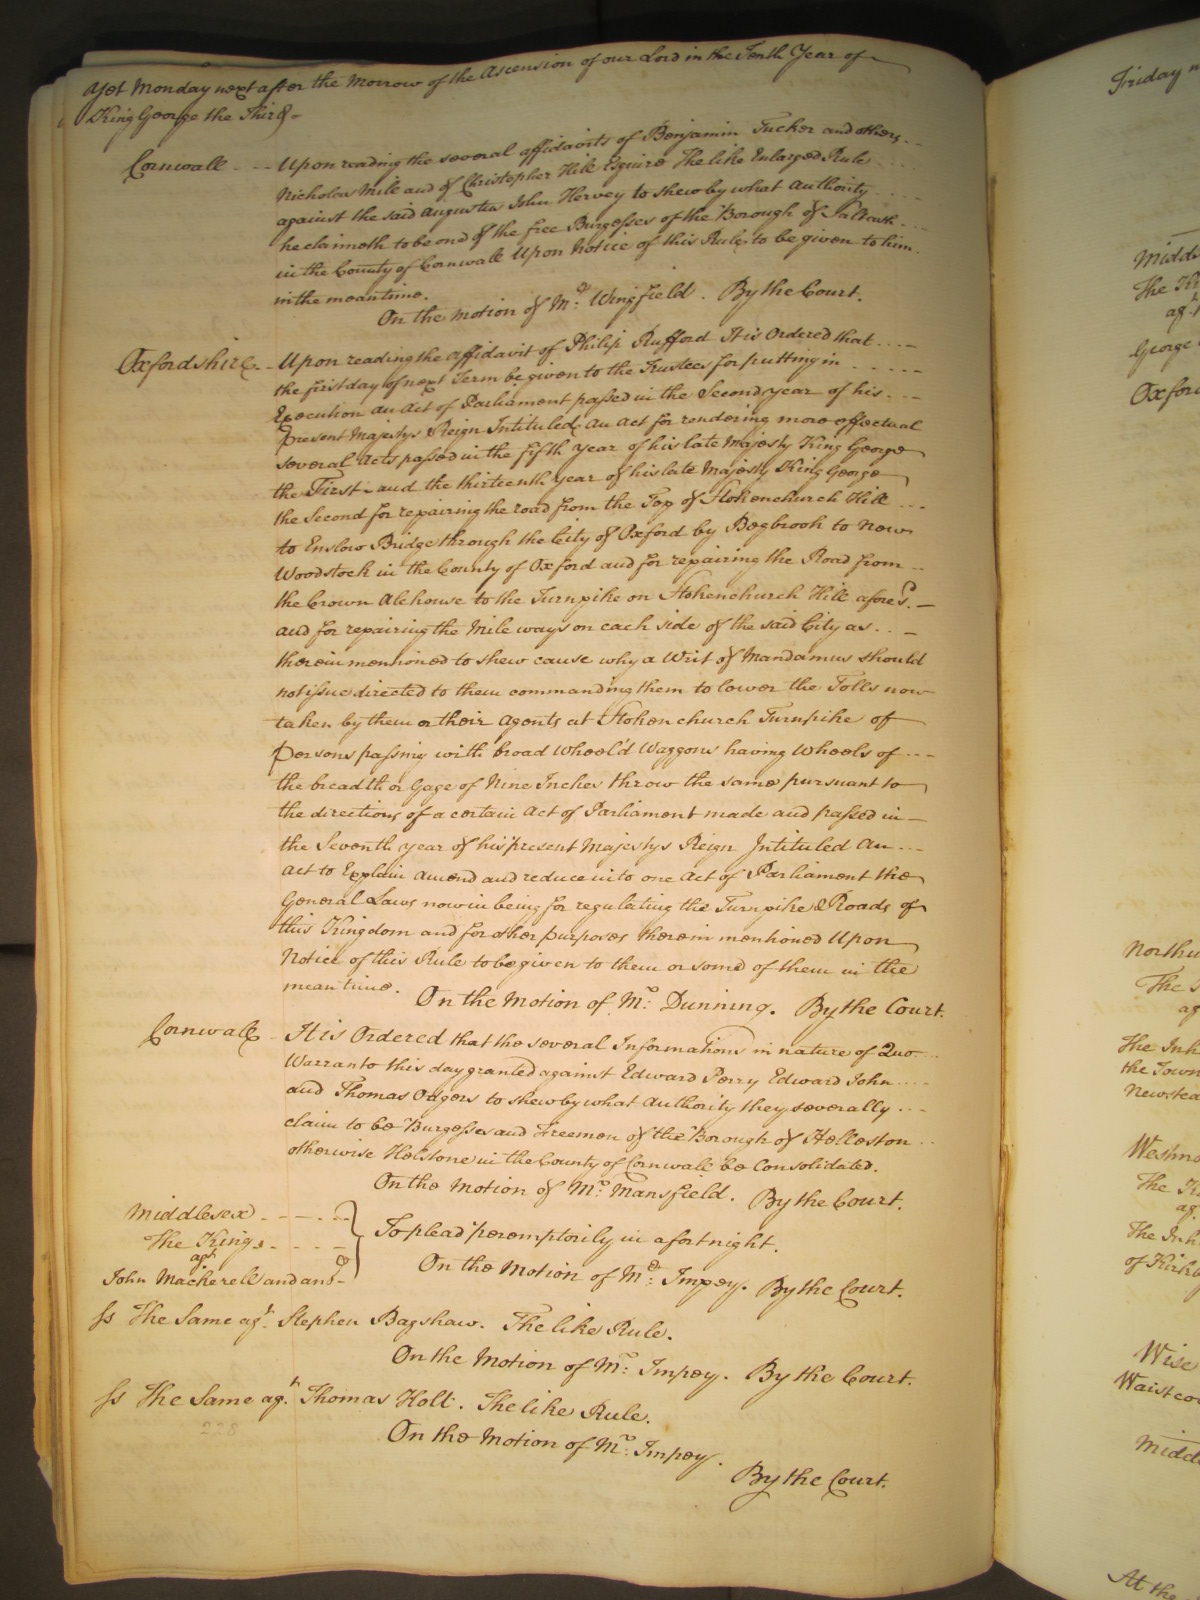 Yet Monday next after the Morrow of the Ascension of our Lord in the Tenth Year of
King George the Third
Cornwall - - - Upon reading the several affidavits of Benjamin Tucker and others
Nicholas Mile and of Christopher Hill Esquire The like Enlarged Rule
against the said Augustus John Hervey to shew by what Authority
he claimeth to be one of the free Burgesses of the Borough of Saltash
in the County of Cornwall Upon Notice of this Rule to be given to him
in the mean time.
On the motion of Mr. Wingfield. By the Court.
Oxfordshire - - Upon reading the affidavit of Philip Rufford It is Ordered that
the first day of next Term be given to the Trustees for putting in
Execution an Act of Parliament passed in the Second year of his
Present Majestys Reign Intituled An Act for rendering more effectual
several Acts passed in the fifth year of his late Majesty King George
the First and the thirteenth year of his late Majesty King George
the Second for repairing the road from the Top of Stokenchurch Hill
to Enslow Bridge through the City of Oxford by Begbrook to New
Woodstock in the County of Oxford and for repairing the Road from
the Crown Alehouse to the Turnpike on Stokenchurch Hill afores.d
and for repairing the Mile ways on each side of the said City as
therein mentioned to shew cause why a Writ of Mandamus should
not issue directed to them commanding them to lower the Tolls now
taken by them or their Agents at Stokenchurch Turnpike of
Persons passing with broad Wheel'd Waggons having Wheels of
the breadth or Gage of Nine Inches throw the same pursuant to
the directions of a certain Act of Parliament made and passed in
the Seventh year of his present Majestys Reign Intituled An
Act to Explain Amend and reduce into one Act of Parliament the
General Laws now in being for regulating the Turnpike Roads of
this Kingdom and for other purposes therein mentioned Upon
Notice of this Rule to be given to them or some of them in the
mean time. On the Motion of Mr. Dunning. By the Court.
Cornwall - It is Ordered that the several Informations in nature of Quo
Warranto this day granted against Edward Perry Edward John
and Thomas Odgers to shew by what Authority they severally
claim to be Burgesses and Freemen of the Borough of Helleston
otherwise Helstone in the County of Cornwall be Consolidated.
On the Motion of Mr. Mansfield. By the Court.
Middlesex
The King
agt
John Mackerell and anor
To plead peremptorily in a fortnight.
On the Motion of Mr. Impey. By the Court.
Ss The Same agt. Stephen Bagshaw. The like Rule.
On the Motion of Mr. Impey. By the Court.
Ss The Same agt. Thomas Holt. The like Rule.
228
On the Motion of Mr. Impey.
By the Court.
Friday
Middle
The
agt
George
Oxford
Northu
The
ag
The Inh
the Town
Newstea
Westmo
The
ag
The Inh
of Kirkb
Wise
Waistco
Middl
At the